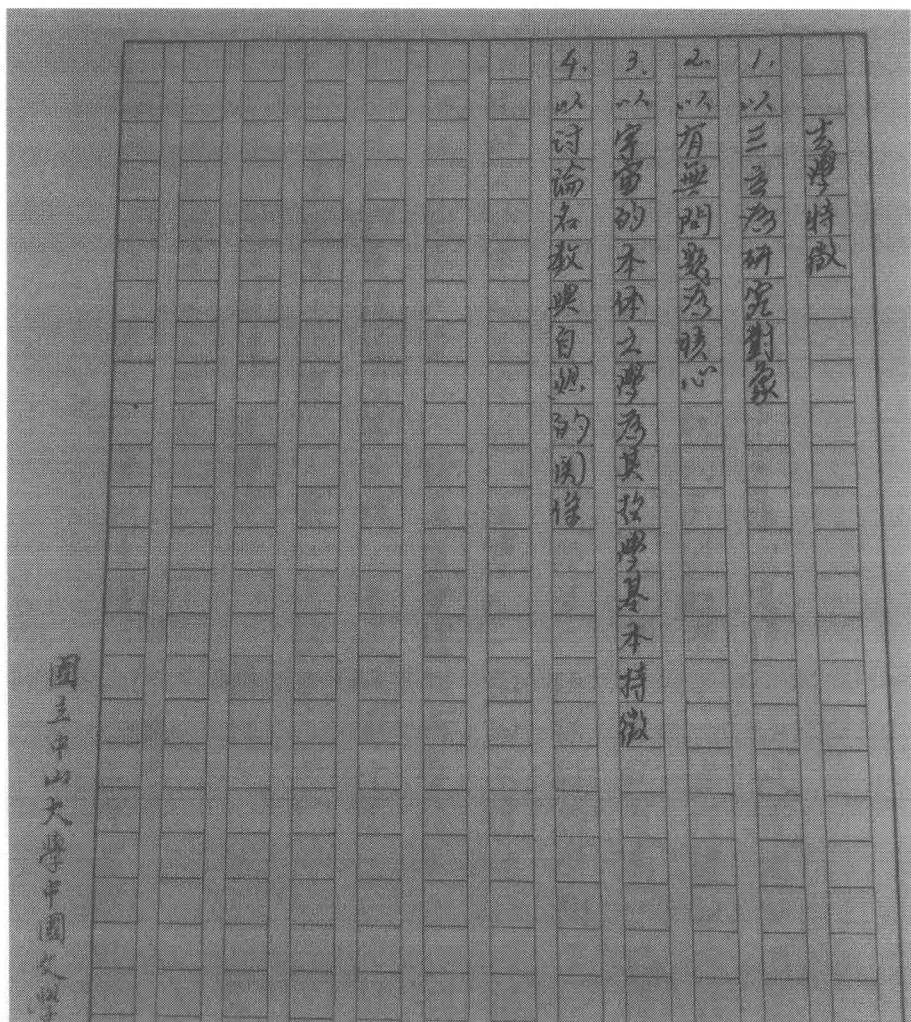 玄學特徵
1.以三玄为研究對象
2.以有無問題为核心
3.以宇宙的本体之學为其哲學基本特徵
4.以討論名教與自然的関係
國立中山大學中國文學